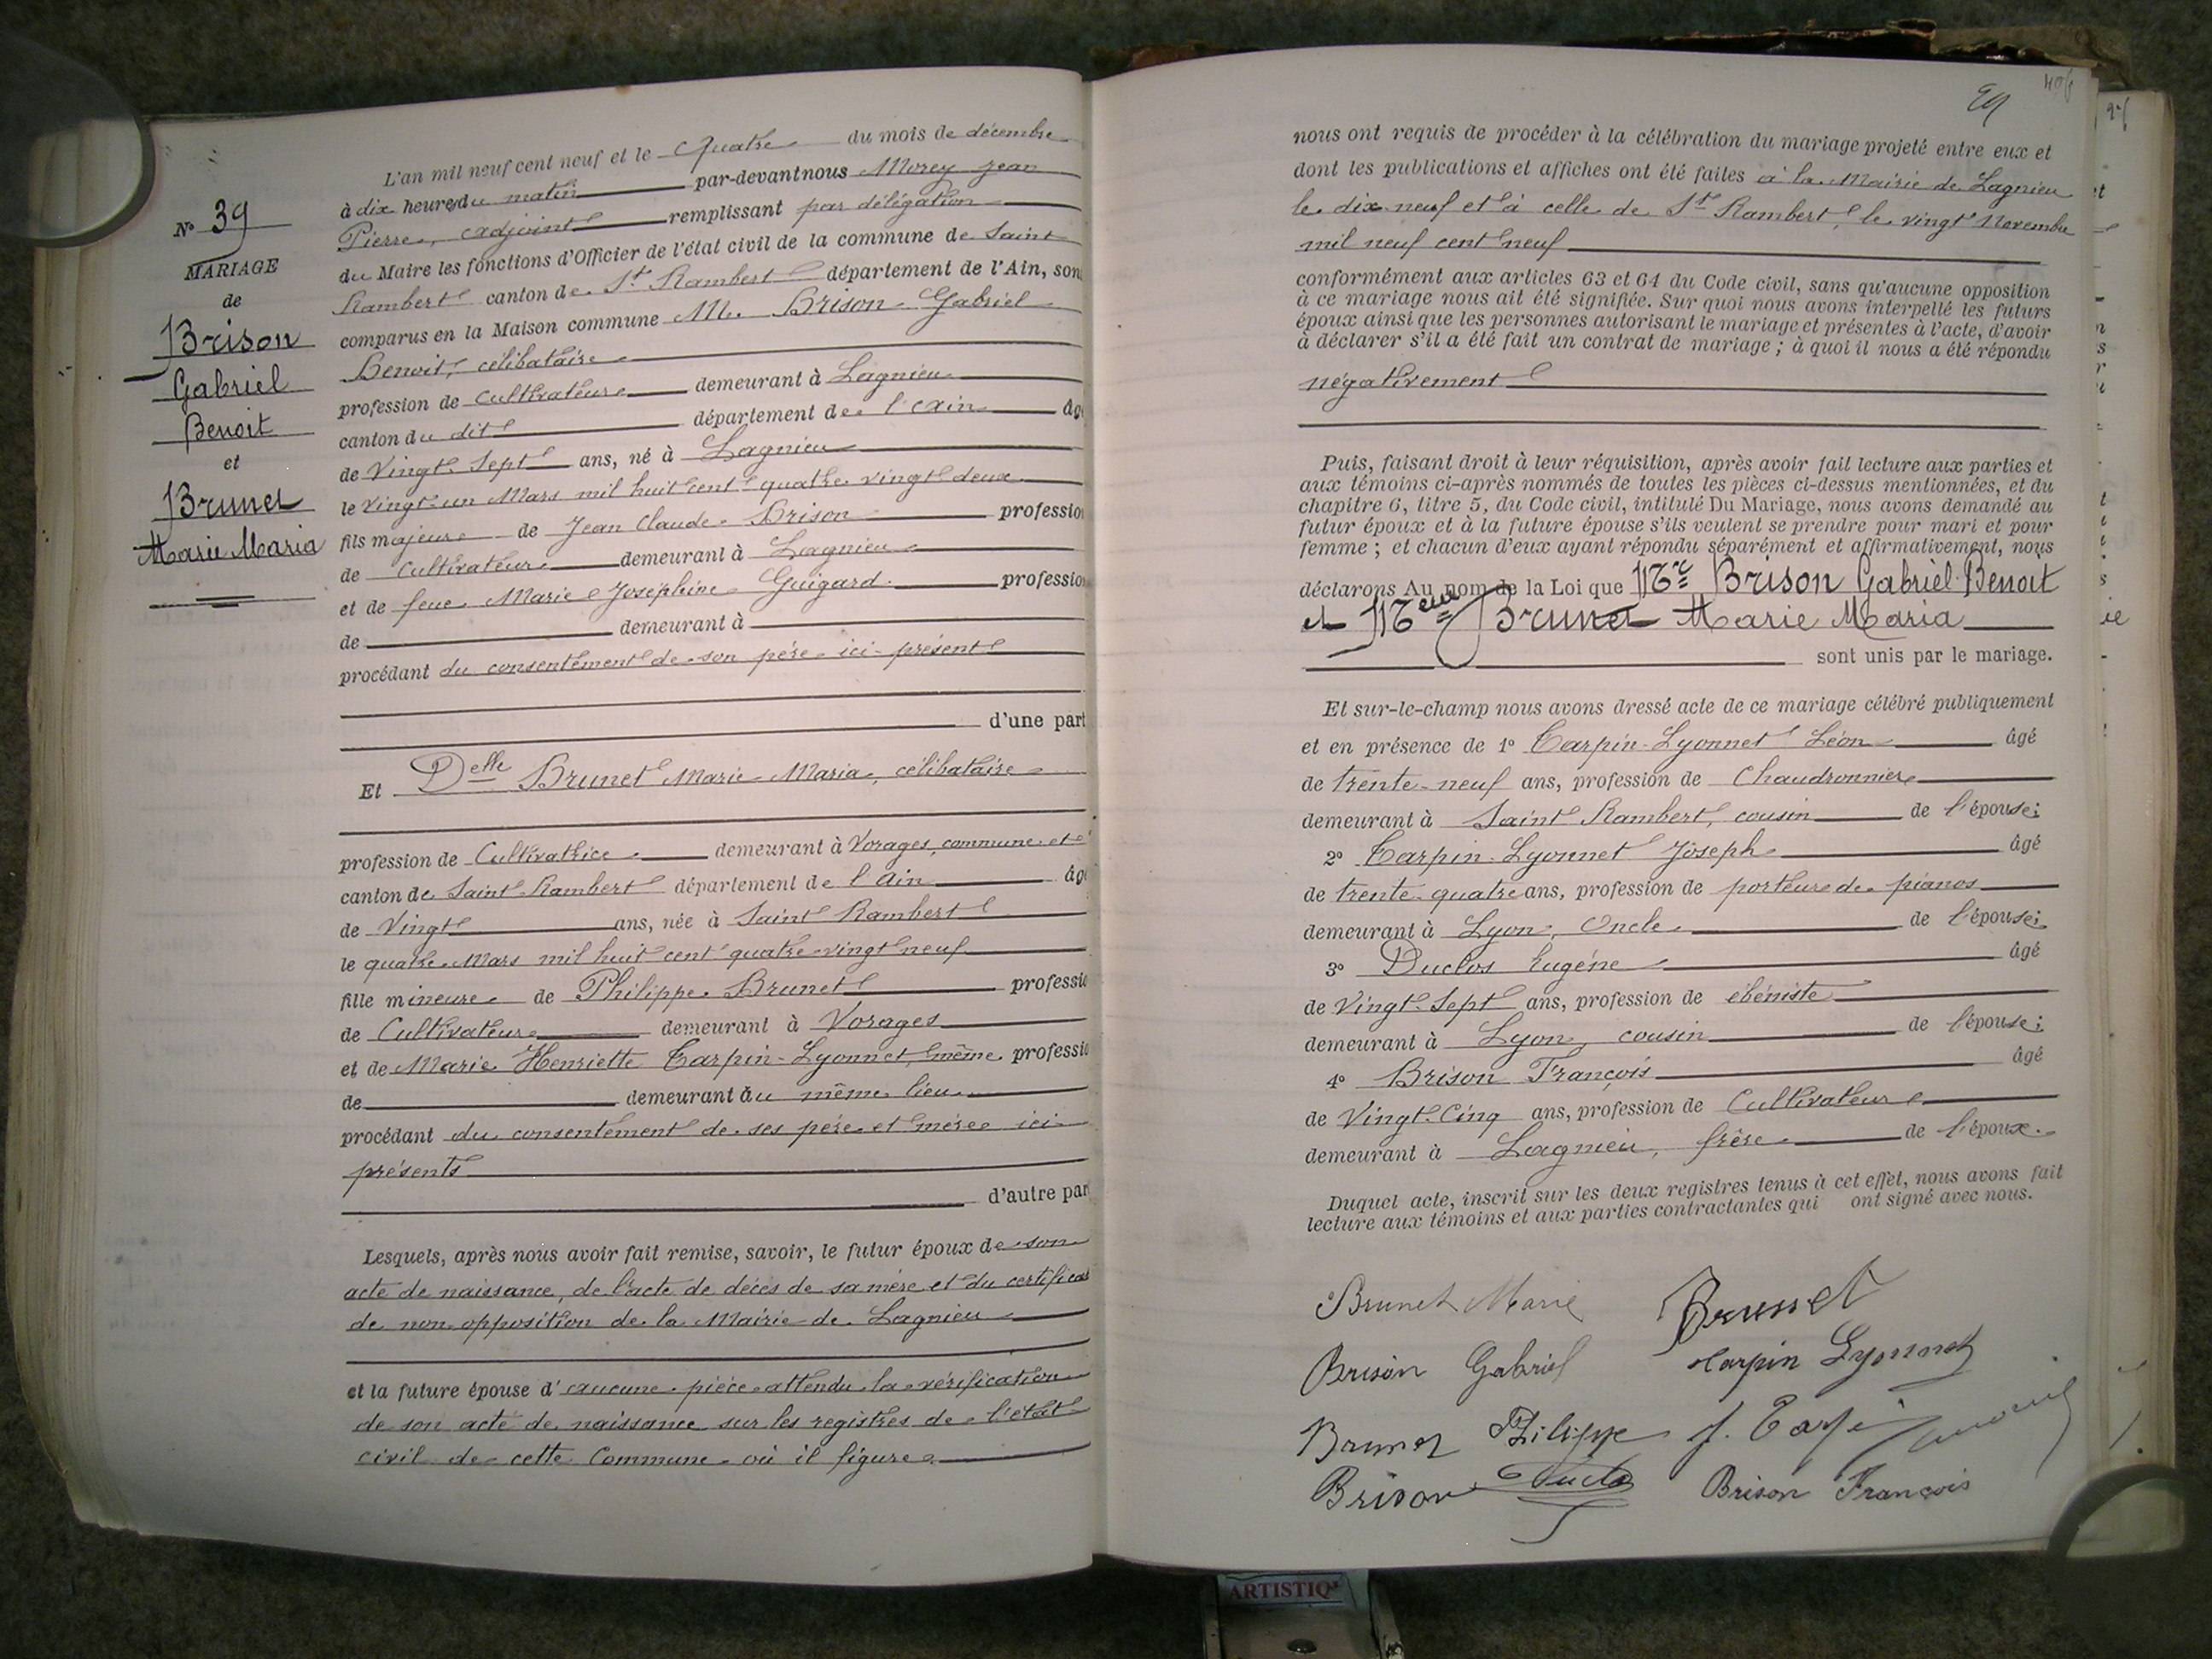 N° 39
MARIAGE
de
Brison
Gabriel
Benoit
et
Brunet
Marie Maria
L'an mil neuf cent neuf et le Quatre du mois de décembre
à dix heures du matin par-devant nous Morey Jean
Pierre, adjoint remplissant par délégation
du Maire les fonctions d'Officier de l'état civil de la commune de Saint
Rambert canton de St Rambert département de l'Ain, son
comparus en la Maison commune M. Brison Gabriel
Benoit, célibataire
profession de Cultivateur demeurant à Lagnieu
canton du dit département de l'Ain âg
de Vingt Sept ans, né à Lagnieu
le Vingt-un Mars mil huit cent quatre vingt deux
fils majeur de Jean Claude Brison professio
de Cultivateur demeurant à Lagnieu
et de feue Marie Joséphine Guigard professio
de demeurant à
procédant du consentement de son père ici présent
d'une part
Et Delle Brunet Marie Maria, célibataire
profession de Cultivatrice demeurant à Vorages, commune et
canton de Saint-Rambert département de l'Ain âg
de Vingt ans, née à Saint Rambert
le quatre Mars mil huit cent quatre-vingt neuf
fille mineure de Philippe Brunet professio
de Cultivateur demeurant à Vorages
et de Marie Henriette Tarpin-Lyonnet, même professio
de demeurant au même lieu
procédant du consentement de ses père et mère ici
présents
d'autre par
Lesquels, après nous avoir fait remise, savoir, le futur époux de son
acte de naissance, de l'acte de décès de sa mère et du certificat
de non opposition de la Mairie de Lagnieu
et la future épouse d'aucune pièce attendu la vérification
de son acte de naissance sur les registres de l'état
civil de cette Commune où il figure
nous ont requis de procéder à la célébration du mariage projeté entre eux et
dont les publications et affiches ont été faites à la Mairie de Lagnieu
le dix-neuf et à celle de St Rambert, le vingt Novembre
mil neuf cent neuf
conformément aux articles 63 et 64 du Code civil, sans qu'aucune opposition
à ce mariage nous ait été signifiée. Sur quoi nous avons interpellé les futurs
époux ainsi que les personnes autorisant le mariage et présentes à l'acte, d'avoir
à déclarer s'il a été fait un contrat de mariage ; à quoi il nous a été répondu
négativement
Puis, faisant droit à leur réquisition, après avoir fait lecture aux parties et
aux témoins ci-après nommés de toutes les pièces ci-dessus mentionnées, et du
chapitre 6, titre 5, du Code civil, intitulé Du Mariage, nous avons demandé au
futur époux et à la future épouse s'ils veulent se prendre pour mari et pour
femme ; et chacun d'eux ayant répondu séparément et affirmativement, nous
déclarons Au nom de la Loi que Mr Brison Gabriel Benoit
et Melle Brunet Marie Maria
sont unis par le mariage.
Et sur-le-champ nous avons dressé acte de ce mariage célébré publiquement
et en présence de 1° Tarpin-Lyonnet Léon âgé
de trente-neuf ans, profession de Chaudronnier
demeurant à Saint Rambert, cousin de l'épouse;
2° Tarpin-Lyonnet Joseph âgé
de trente-quatre ans, profession de porteur de pianos
demeurant à Lyon, Oncle de l'épouse;
3° Duclos Eugène âgé
de Vingt-Sept ans, profession de ébéniste
demeurant à Lyon, cousin de l'épouse;
4° Brison François âgé
de Vingt-Cinq ans, profession de Cultivateur
demeurant à Lagnieu, frère de l'époux.
Duquel acte, inscrit sur les deux registres tenus à cet effet, nous avons fait
lecture aux témoins et aux parties contractantes qui ont signé avec nous.
Brunet Marie Brunet
Brison Gabriel Tarpin Lyonnet
Brunet Philippe J. Tarpin
Brison Duclos Brison François
ARTISTIQ